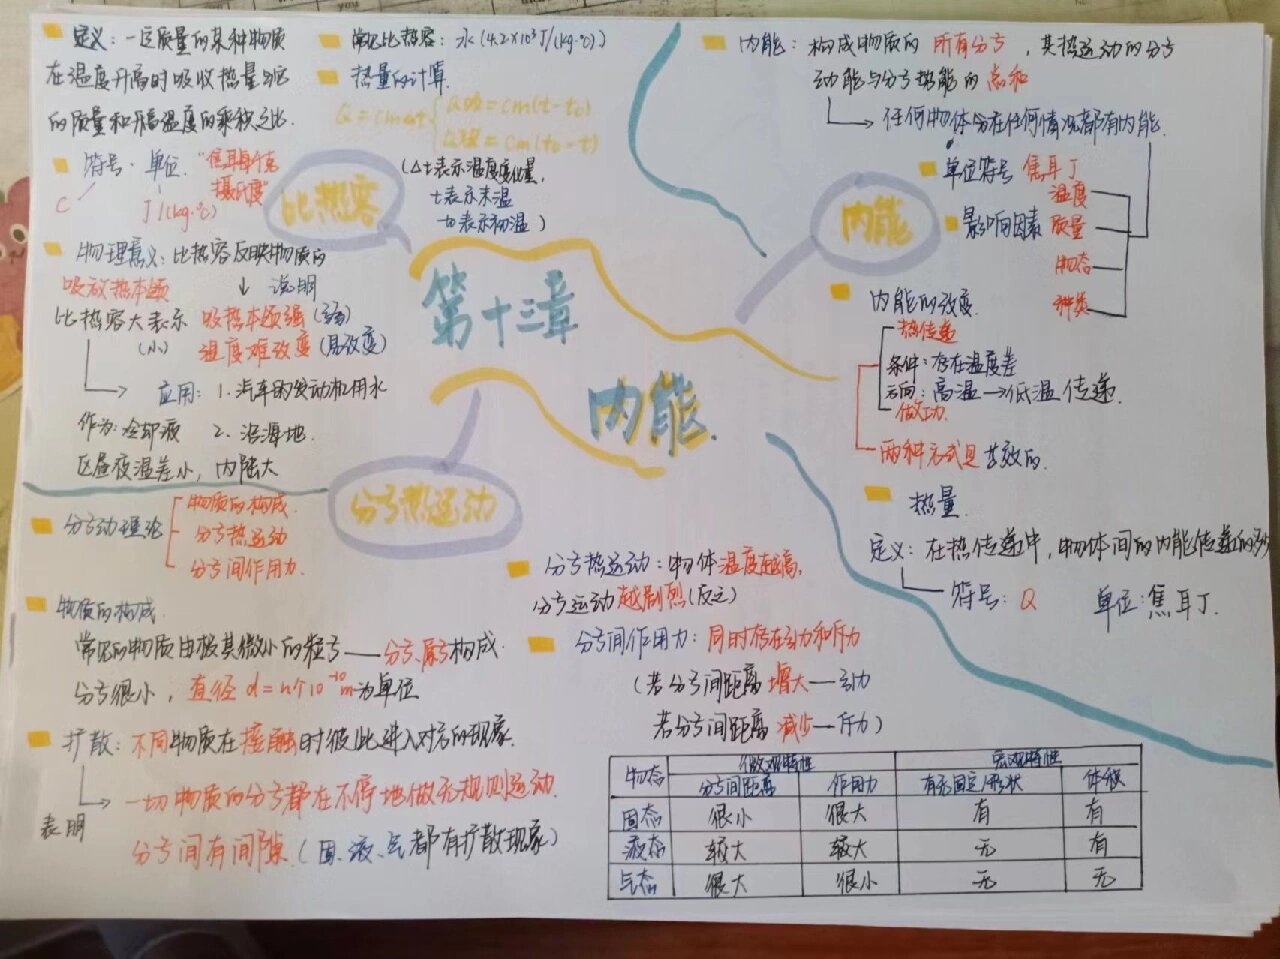 定义：一定质量的某种物质
在温度升高时吸收热量与它
的质量和升高温度的乘积之比.
符号. 单位. "焦耳每千克
摄氏度"
C
J/(kg·℃)
物理意义：比热容反映物质的
吸放热本领
↓ 说明
比热容大表示 吸热本领强(弱)
(小) 温度难改变(易改变)
应用：1. 汽车的发动机用水
作为：冷却液 2. 沿海地
区昼夜温差小，内陆大
常见比热容：水(4.2×10³J/(kg·℃))
热量的计算.
Q=cmΔt
Q吸=cm(t-t₀)
Q放=cm(t₀-t)
(Δt表示温度变化量,
t表示末温
t₀表示初温 )
比热容
第十三章
内能.
内能：构成物质的 所有分子，其热运动的分子
动能与分子势能的 总和
任何物体在任何情况都有内能.
单位符号 焦耳 J
影响因素
温度
质量
物态
种类
内能
内能的改变.
热传递
条件：存在温度差
方向：高温→低温 传递.
做功.
两种方式是 等效的.
热量.
定义：在热传递中，物体间的内能传递的多少
符号：Q 单位：焦耳 J.
分子热运动
分子动理论
物质的构成.
分子热运动
分子间作用力.
物质的构成.
常见的物质由极其微小的粒子——分子、原子构成.
分子很小，直径 d=n个10⁻¹⁰m为单位
扩散：不同物质在接触时彼此进入对方的现象.
表明
一切物质的分子都在不停地做无规则运动.
分子间有间隙.(固、液、气都有扩散现象)
分子热运动：物体温度越高，
分子运动越剧烈(反之)
分子间作用力：同时存在引力和斥力
(若分子间距离 增大—引力
若分子间距离 减少—斥力)
物态 微观特性 宏观特性
分子间距离 作用力 有无固定形状 体积
固态 很小 很大 有 有
液态 较大 较大 无 有
气态 很大 很小 无 无